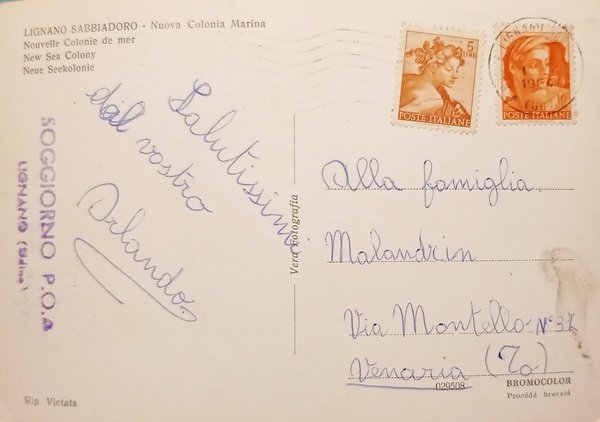 LIGNANO SABBIADORO - Nuova Colonia Marina
Nouvelle Colonie de mer
New Sea Colony
Neue Seekolonie
Salutissimi
dal vostro
Orlando
SOGGIORNO P.O.A
LIGNANO (Udine)
Vera Fotografia
5
LIRE
POSTE ITALIANE
POSTE ITALIANE
LIGNANO
Alla famiglia
Malandrin
Via Montello N° 37
Venaria (To)
029508
BROMOCOLOR
Procédé breveté
Rip. Vietata